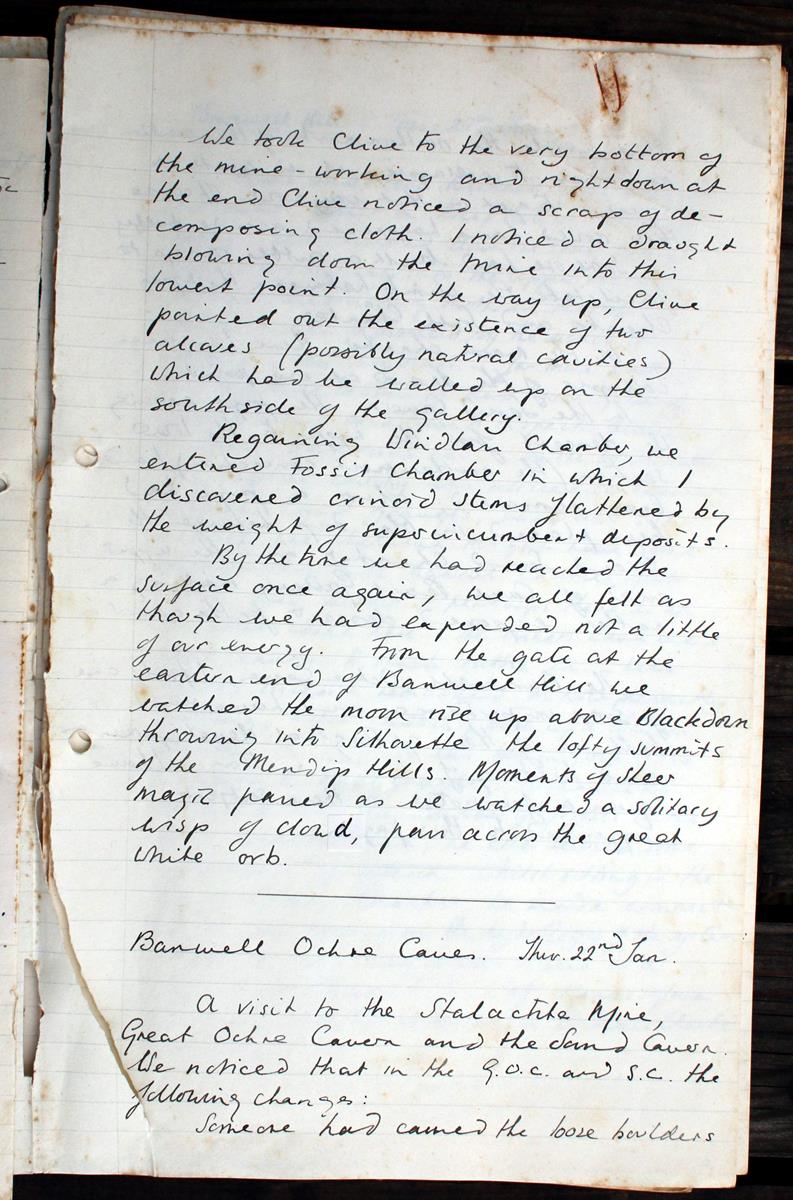 We took Clive to the very bottom of
the mine-working and right down at
the end Clive noticed a scrap of de-
composing cloth. I noticed a draught
blowing down the mine into this
lowest point. On the way up, Clive
pointed out the existence of two
alcoves (possibly natural cavities)
which had be walled up on the
south side of the gallery.
Regaining Windlass Chamber, we
entered Fossil Chamber in which I
discovered crinoid stems flattened by
the weight of superincumbent deposits.
By the time we had reached the
surface once again, we all felt as
though we had expended not a little
of our energy. From the gate at the
eastern end of Banwell Hill we
watched the moon rise up above Blackdown
throwing into silhouette the lofty summits
of the Mendip Hills. Moments of sheer
magic passed as we watched a solitary
wisp of cloud, pass across the great
white orb.
Banwell Ochre Caves. Thur. 22nd Jan.
A visit to the Stalactite Mine,
Great Ochre Cavern and the Sand Cavern.
We noticed that in the G.O.C. and S.C. the
following changes:
Someone had caused the loose boulders